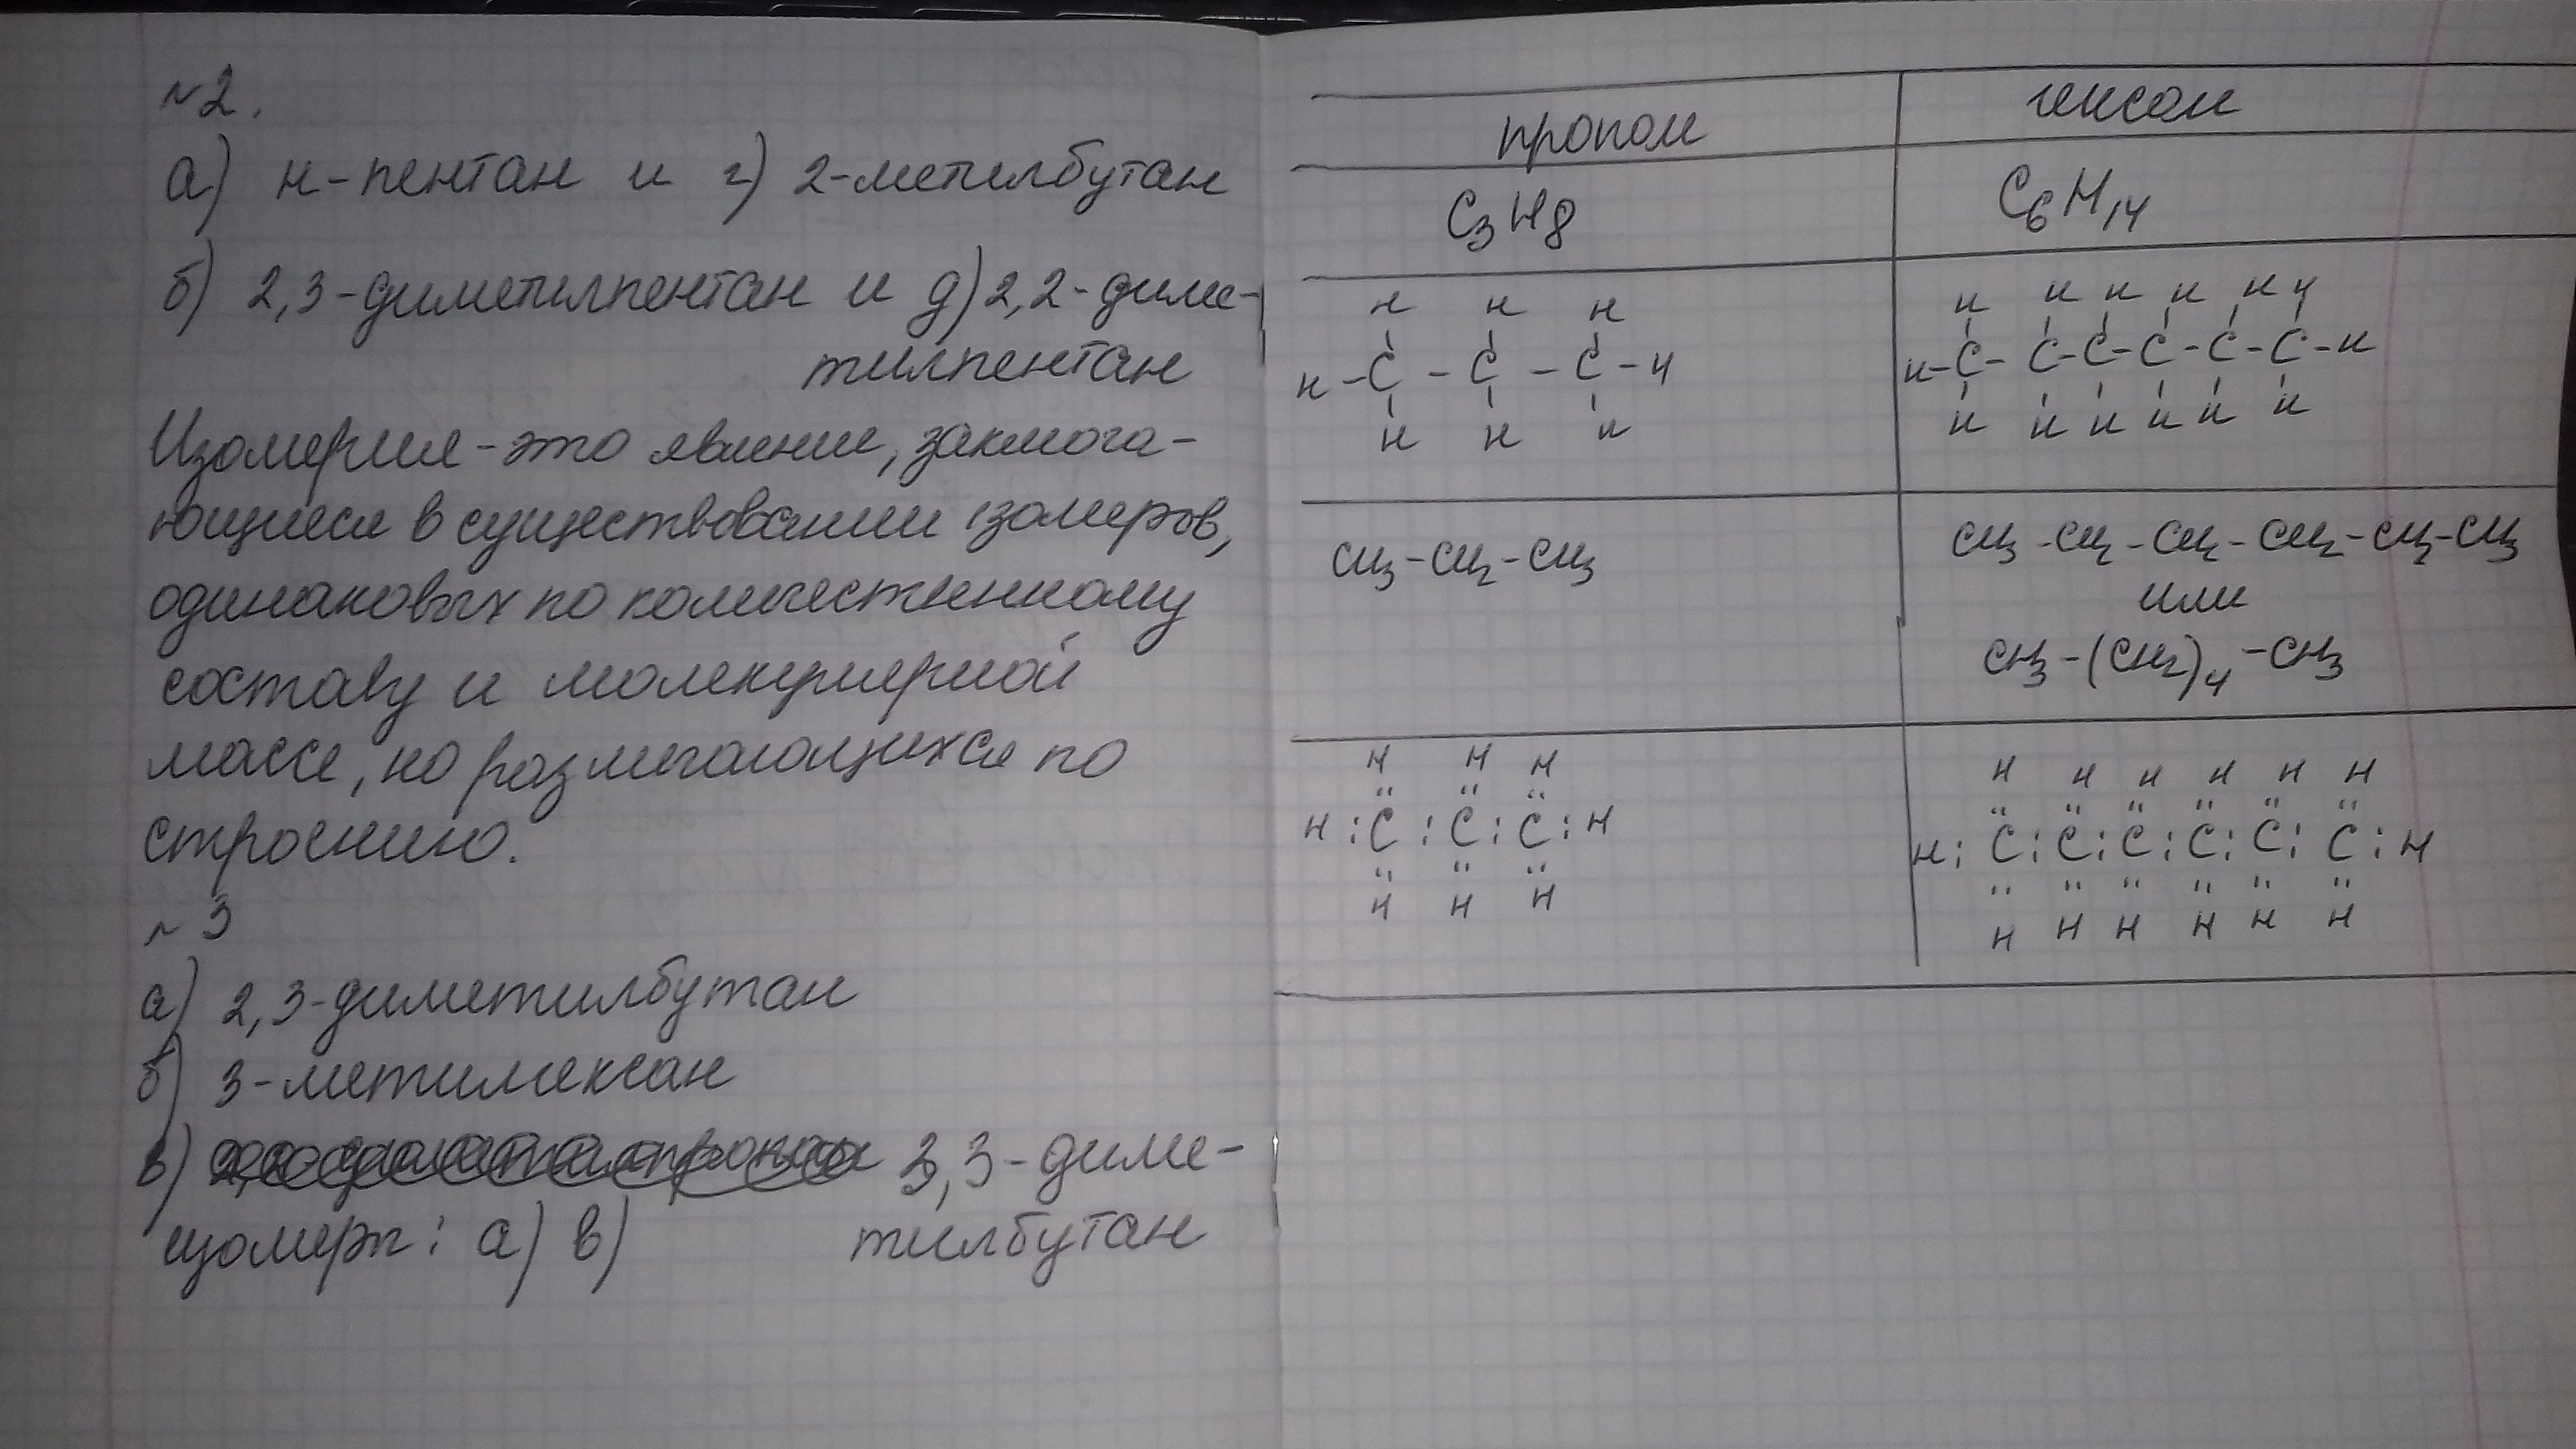 №2.
а) н-пентан и г) 2-метилбутан
б) 2,3-диметилпентан и д) 2,2-диме-
тилпентан
Изомерия - это явление, заключа-
ющиеся в существовании изомеров,
одинаковых по количественному
составу и молекулярной
массе, но различающихся по
строению.
№3
а) 2,3-диметилбутан
б) 3-метилгексан
в) 3,3-диме-
тилбутан
изомеры: а) в)
пропан
гексан
C3H8
C6H14
H H H
H-C-C-C-H
H H H
H H H H H H
H-C-C-C-C-C-C-H
H H H H H H
CH3-CH2-CH3
CH3-CH2-CH2-CH2-CH2-CH3
или
CH3-(CH2)4-CH3
H H H
.. .. ..
H:C:C:C:H
.. .. ..
H H H
H H H H H H
.. .. .. .. .. ..
H:C:C:C:C:C:C:H
.. .. .. .. .. ..
H H H H H H